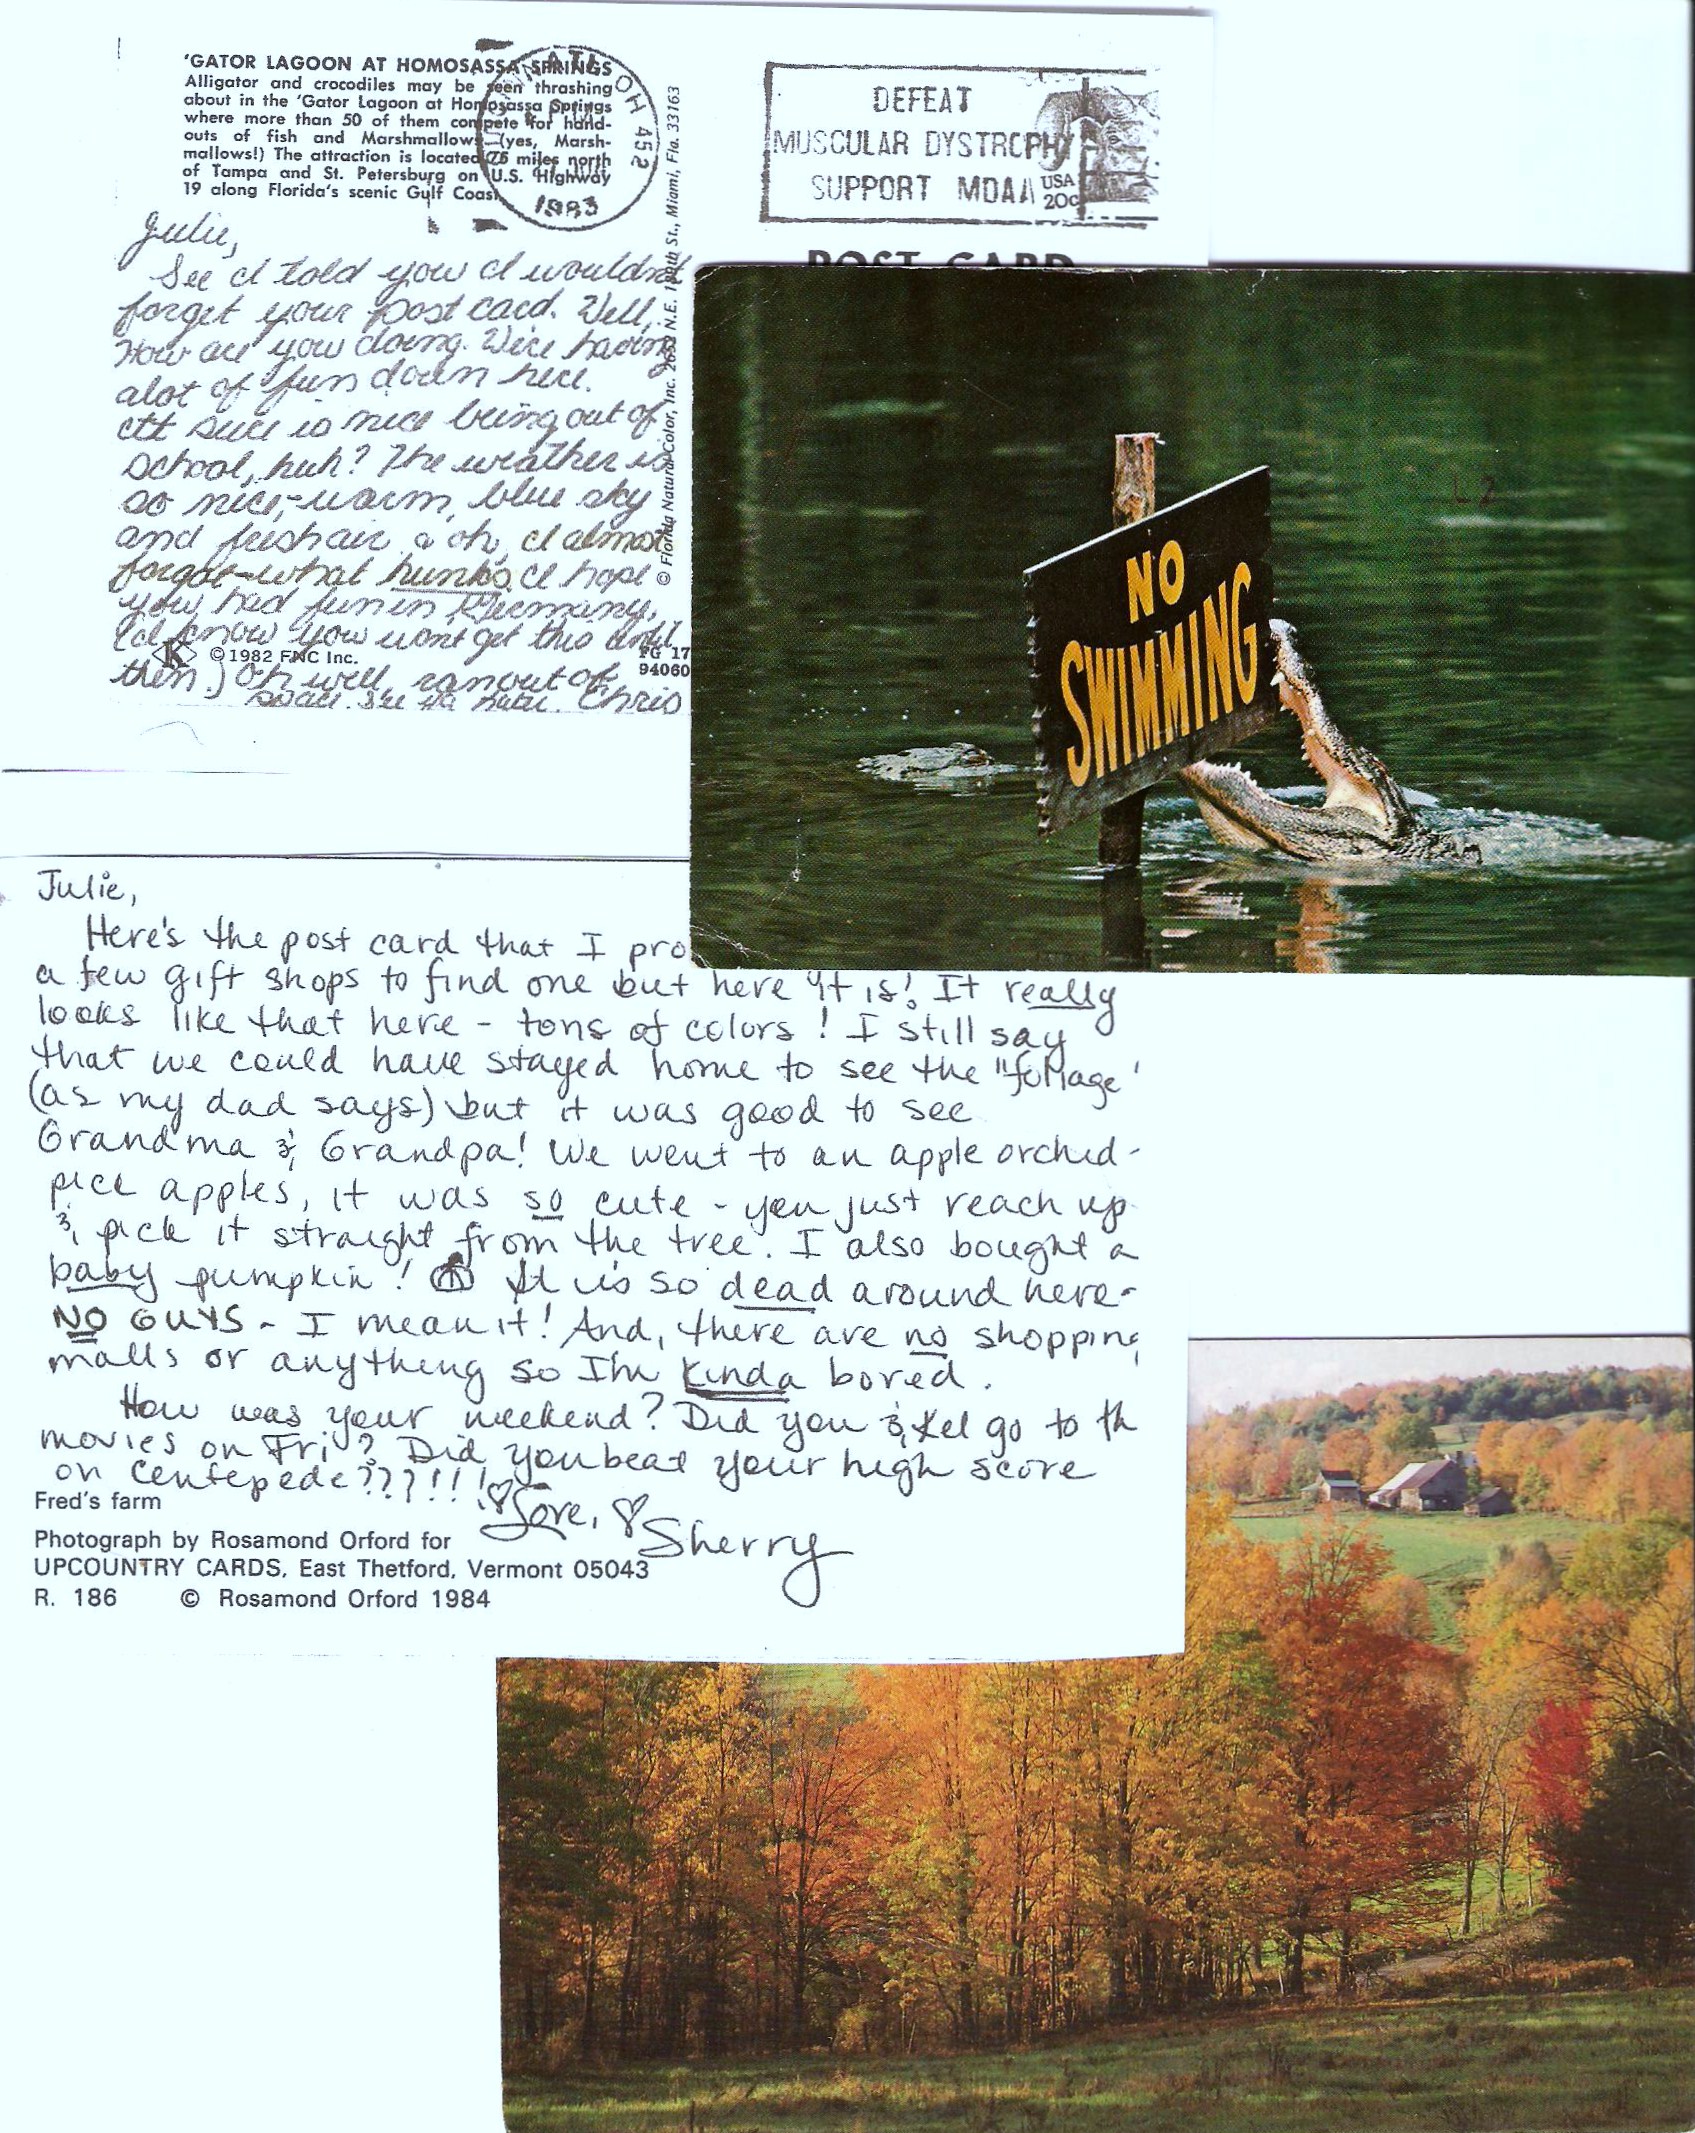 'GATOR LAGOON AT HOMOSASSA SPRINGS
Alligator and crocodiles may be seen thrashing
about in the 'Gator Lagoon at Homosassa Springs
where more than 50 of them compete for hand-
outs of fish and Marshmallows—(yes, Marsh-
mallows!) The attraction is located 75 miles north
of Tampa and St. Petersburg on U.S. Highway
19 along Florida's scenic Gulf Coast
OH 452
PM
1983
DEFEAT
MUSCULAR DYSTROPHY
SUPPORT MDAA
USA
20c
POST CARD
© Florida Natural Color, Inc. 2632 N.E. 188th St., Miami, Fla. 33163
Julie,
See I told you I wouldn't
forget your post card. Well,
How are you doing. We're having
alot of fun down here.
It sure is nice being out of
school, huh? The weather is
so nice,-warm, blue sky
and fresh air & oh, I almost
forgot-what hunks. I hope
you had fun in Germany,
(I know you wont get this until
then.) Oh well, ran out of
space. See ya later. Chris
K ©1982 FNC Inc.
FG 17
94060
NO
SWIMMING
L 2
Julie,
Here's the post card that I pro
a few gift shops to find one but here it is! It really
looks like that here - tons of colors! I still say
that we could have stayed home to see the "foliage'
(as my dad says) but it was good to see
Grandma & Grandpa! We went to an apple orchid-
pick apples, it was so cute - you just reach up
& pick it straight from the tree. I also bought a
baby pumpkin! It is so dead around here-
NO GUYS - I mean it! And, there are no shopping
malls or anything so I'm kinda bored.
How was your weekend? Did you & Kel go to th
movies on Fri? Did you beat your high score
on Centepede???!!!
Love,
Sherry
Fred's farm
Photograph by Rosamond Orford for
UPCOUNTRY CARDS, East Thetford, Vermont 05043
R. 186 © Rosamond Orford 1984